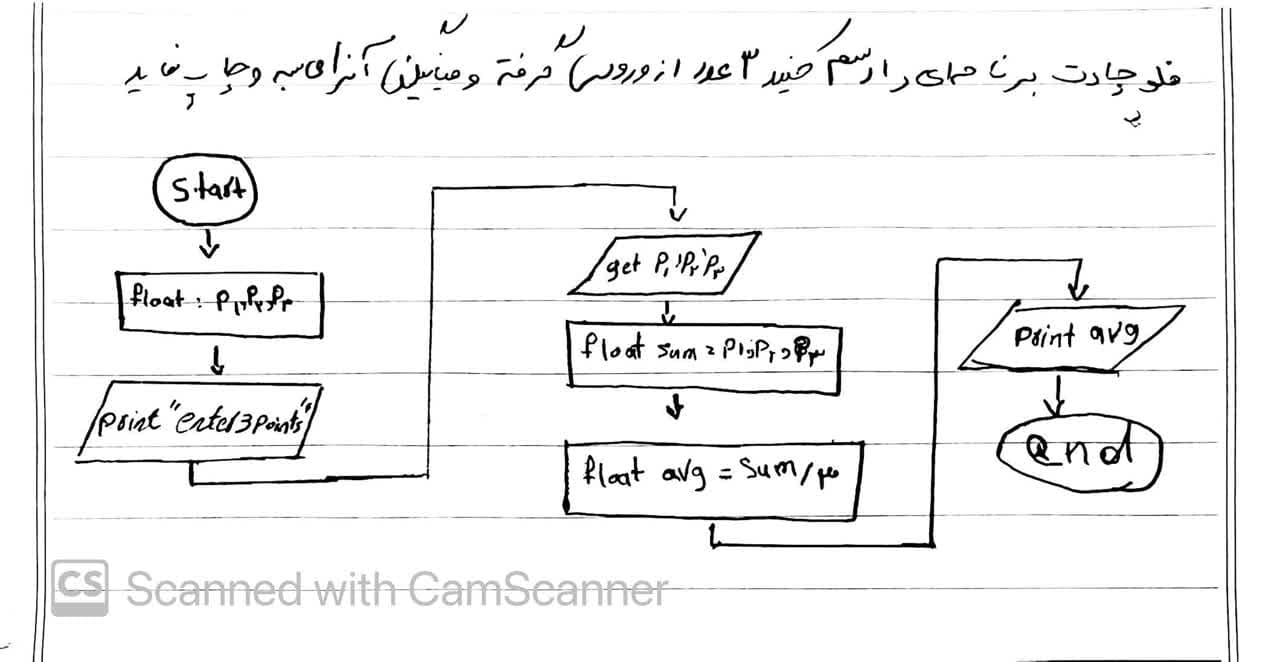 فلوچارت برنامه‌ای را رسم کنید ۳ عدد از ورودی گرفته و میانگین آنرا محاسبه و چاپ نماید
Start
float : P۱,P۲,P۳
print "enter 3 points"
get P۱,P۲,P۳
float sum = P۱,P۲,P۳
float avg = sum/۳
print avg
end
CS Scanned with CamScanner